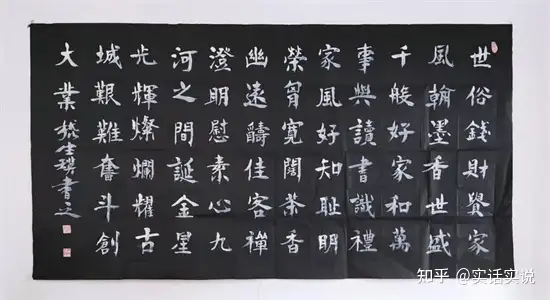 世俗錢財賢家
風翰墨香世盛
千般好家和萬
事興讀書識禮
家風好知恥明
榮胷寬闊茶香
幽遠醻佳客禪
澄明慰素心九
河之間誕金星
光輝燦爛耀古
城艱難奮斗創
大業
知乎 @实话实说